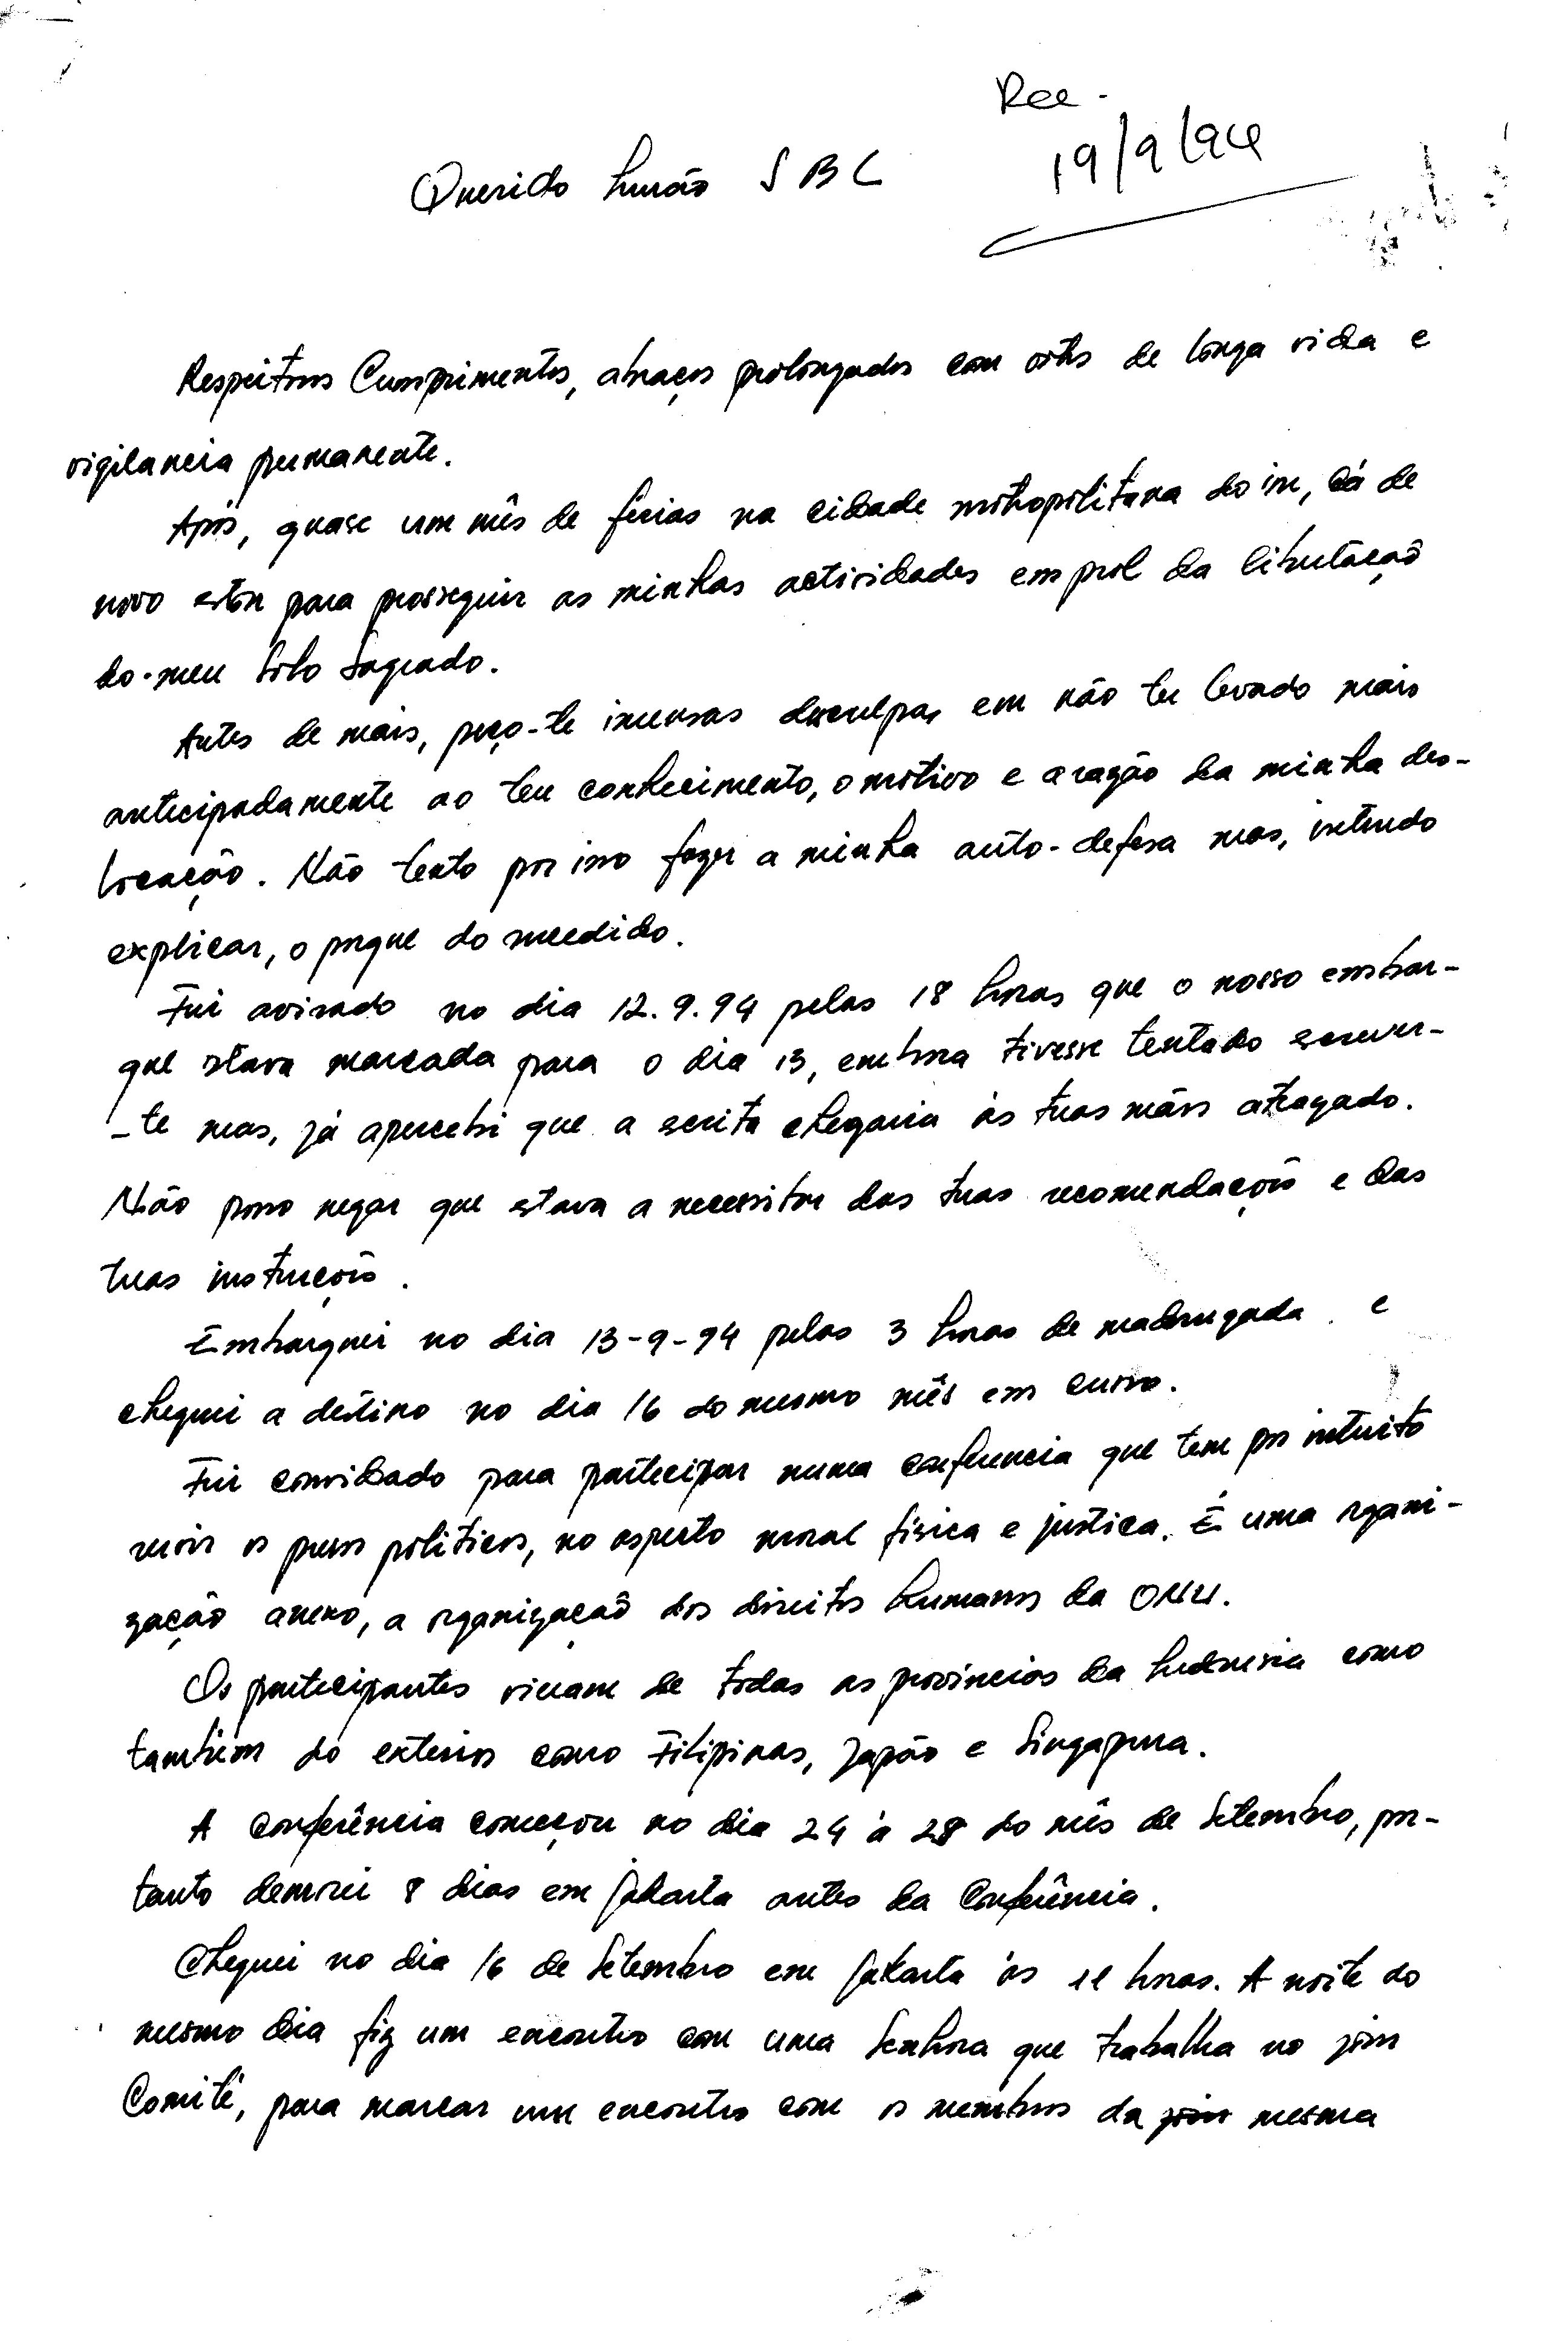 Rec -
19/9/94
Querido Irmão S B C
Respeitosos Cumprimentos, abraços prolongados com votos de longa vida e
vigilancia permanente.
Após, quase um mês de férias na cidade metropolitana do im, cá de
novo estou para prosseguir as minhas actividades em prol da libertação
do meu Solo Sagrado.
Antes de mais, peço-te imensas desculpas em não ter levado mais
antecipadamente ao teu conhecimento, o motivo e a razão da minha des-
locação. Não tento por isso fazer a minha auto-defesa mas, intendo
explicar, o porque do sucedido.
Fui avisado no dia 12.9.94 pelas 18 horas que o nosso embar-
que stava marcada para o dia 13, embora tivesse tentado escrever-
-te mas, já apercebi que a escrita chegaria às tuas mãos atrazado.
Não posso negar que estava a necessitar das tuas recomendações e das
tuas instruções.
Embarquei no dia 13-9-94 pelas 3 horas de madrugada e
cheguei a destino no dia 16 do mesmo mês em curso.
Fui convidado para participar numa conferencia que tem por intuito
reviver os presos politicos, no aspecto moral física e justica. É uma rgani-
zação anexo, a organização dos direitos humanos da ONU.
Os participantes vieram de todas as provincias da Indonesia como
também do exterior como Filipinas, Japão e Singapura.
A Conferência começou no dia 24 à 28 do mês de Setembro, por-
tanto demorei 8 dias em Jakarta antes da Conferência.
Cheguei no dia 16 de Setembro em Jakarta às 11 horas. A noite do
mesmo dia fiz um encontro com uma Senhora que trabalha no join
Comité, para marcar um encontro com os membros da join mesma